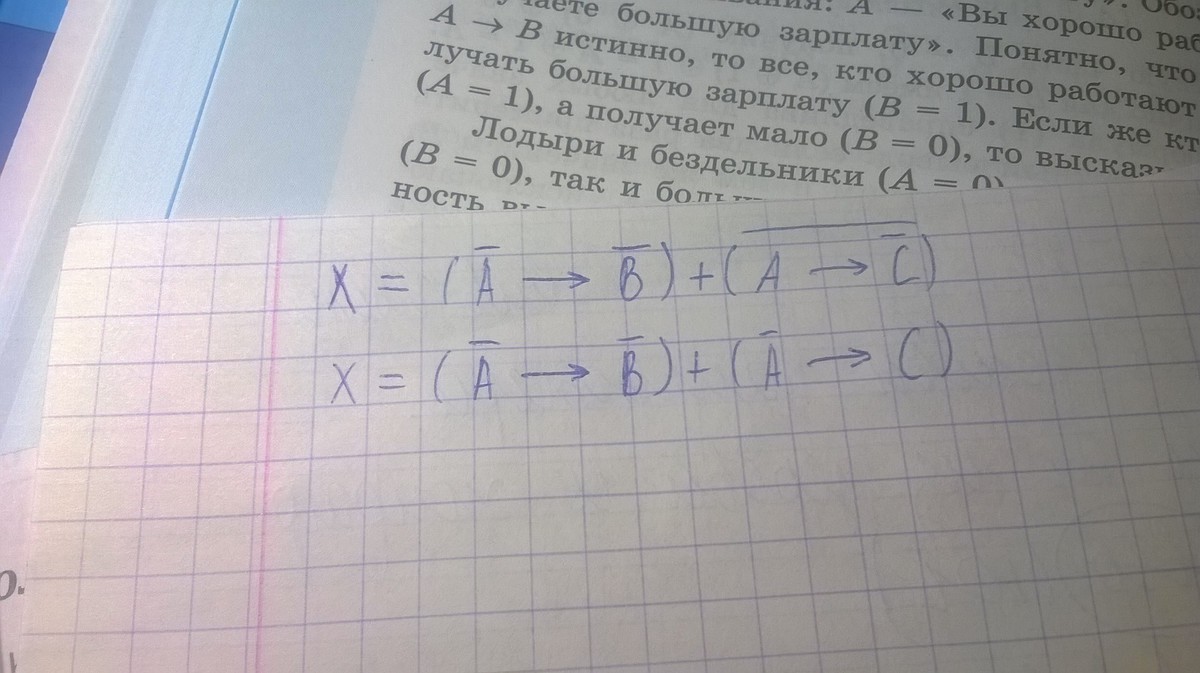 — «Вы хорошо
большую зарплату». Понятно, что
A → B истинно, то все, кто хорошо работают
лучать большую зарплату (B = 1). Если же
(A = 1), а получает мало (B = 0), то
Лодыри и бездельники (A = 0)
(B = 0), так и
ность
X = (A̅ → B̅) + (\overline{A → C̅})
X = (A̅ → B̅) + (A̅ → C)